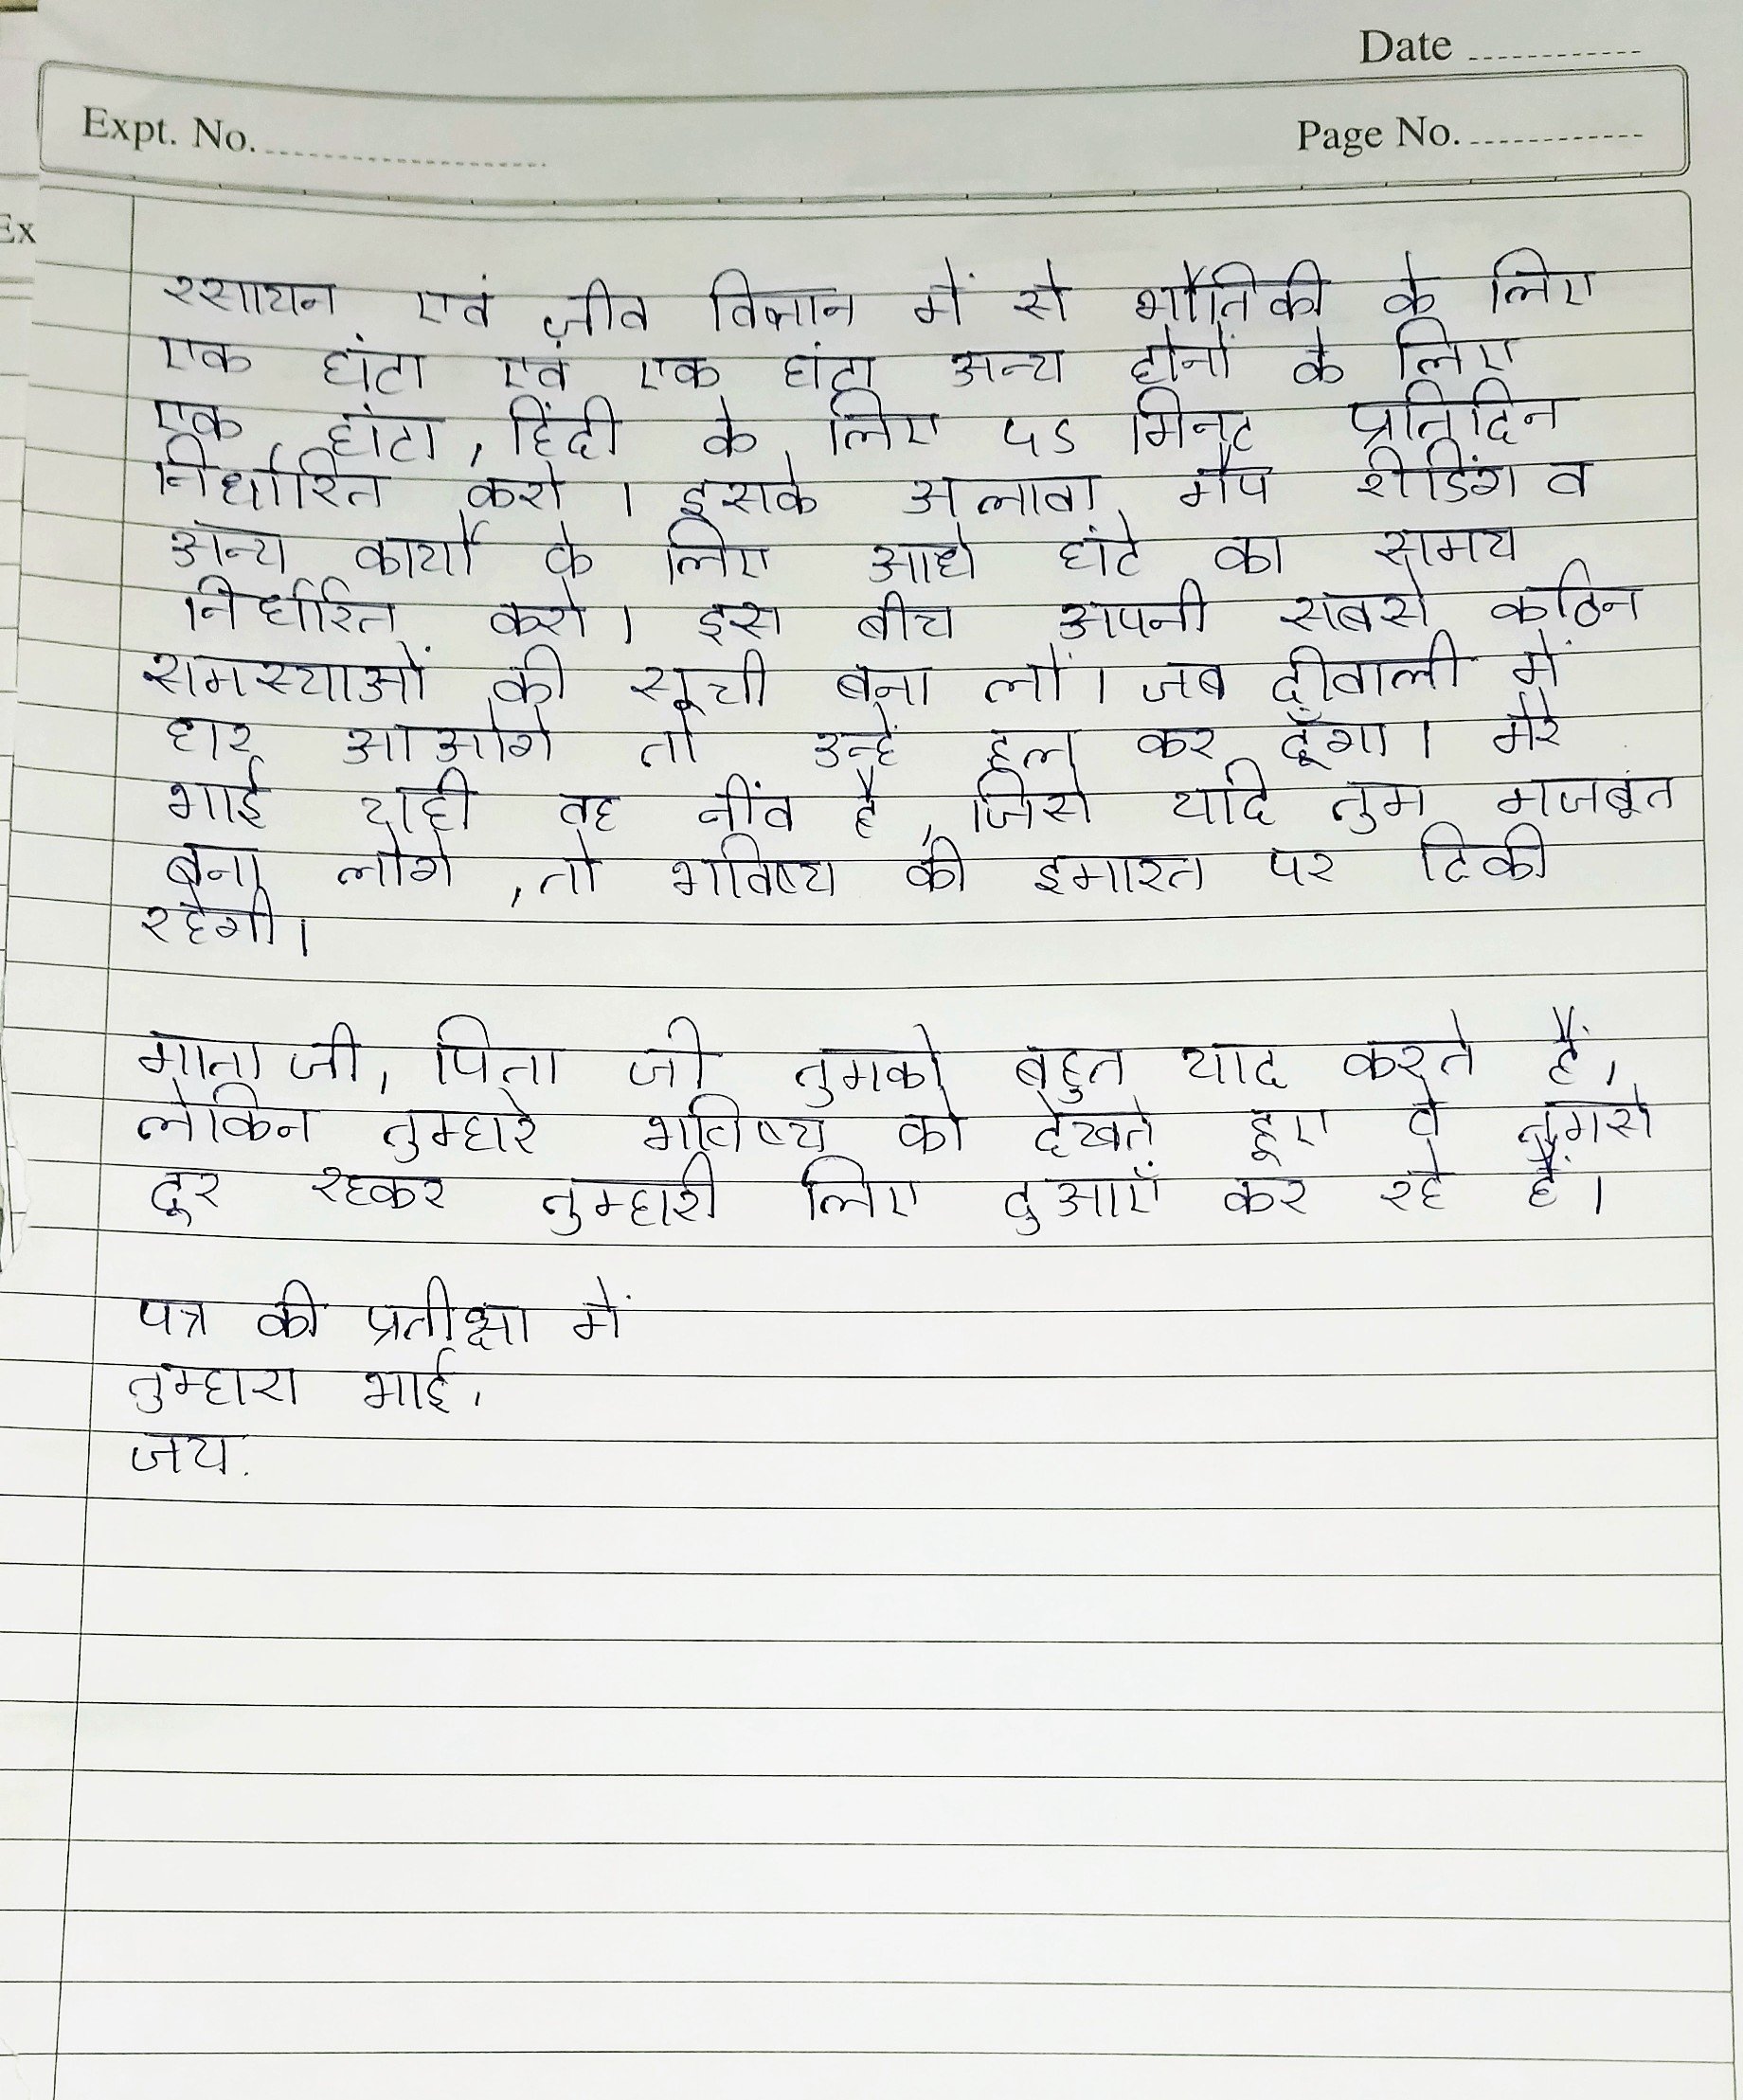 Date
Expt. No.
Page No.
Ex
रसायन एवं जीव विज्ञान में से भौतिकी के लिए
एक घंटा एवं एक घंटा अन्य दोनों के लिए
एक घंटा, हिंदी के लिए 45 मिनट प्रतिदिन
निर्धारित करो। इसके अलावा मैप रीडिंग व
अन्य कार्यों के लिए आधे घंटे का समय
निर्धारित करो। इस बीच अपनी सबसे कठिन
समस्याओं की सूची बना लों। जब दीवाली में
घर आओगे तो उन्हें हल कर दूँगा। मेरे
भाई यही वह नींव है, जिसे यदि तुम मजबूत
बना लोगे, तो भविष्य की इमारत पर टिकी
रहेगी।
माता जी, पिता जी तुमको बहुत याद करते हैं,
लेकिन तुम्हारे भविष्य को देखते हुए वे तुमसे
दूर रहकर तुम्हारी लिए दुआएँ कर रहे हैं।
पत्र की प्रतीक्षा में
तुम्हारा भाई,
जय.